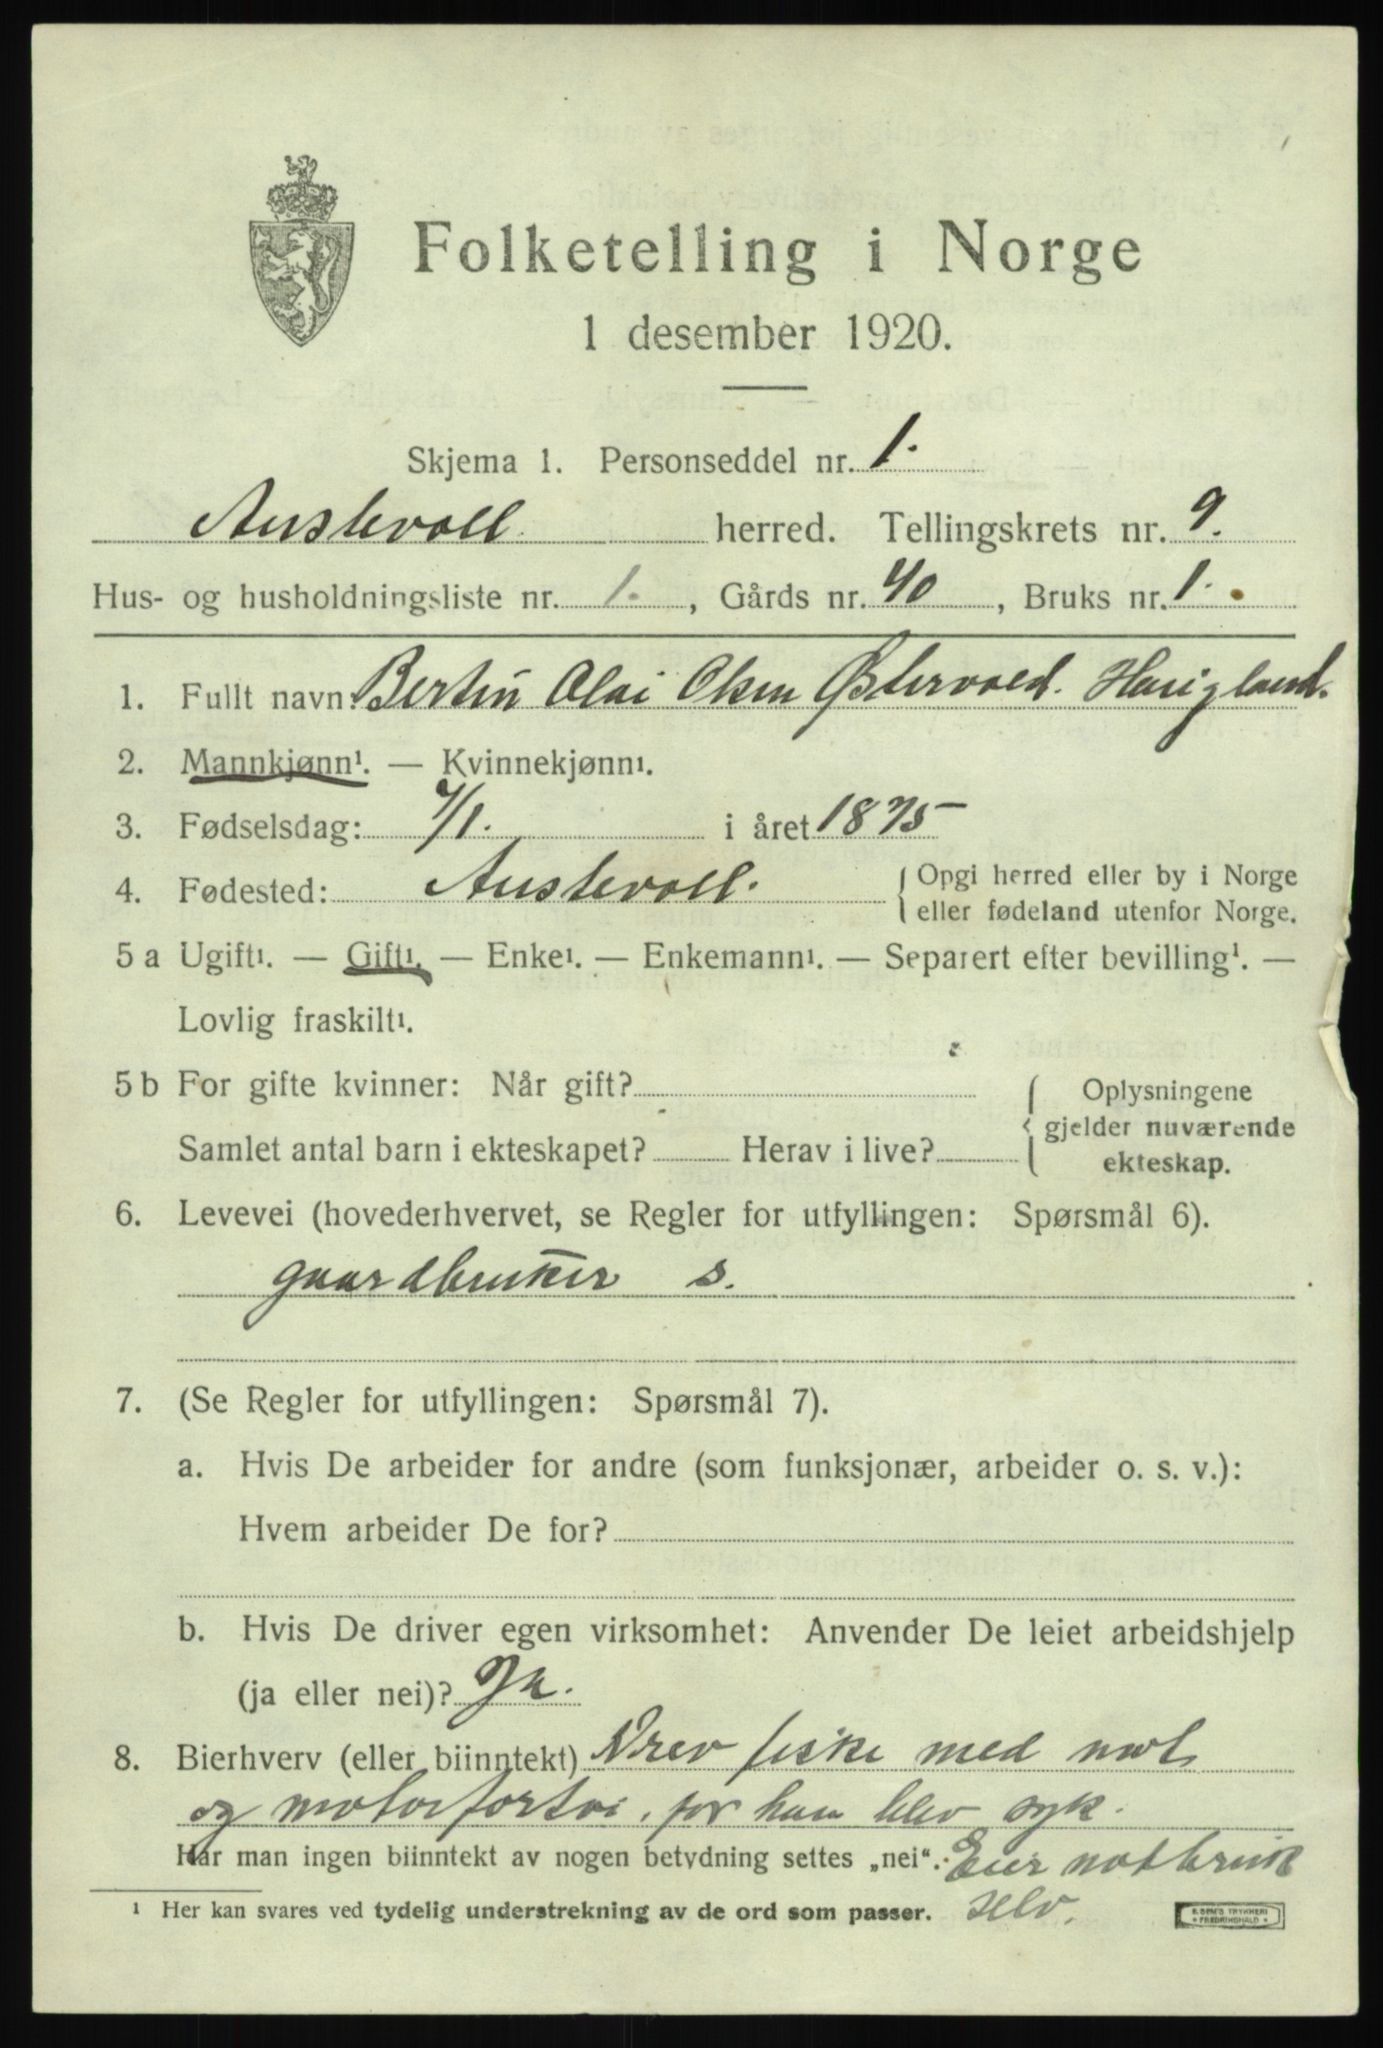 Folketelling i Norge
1 desember 1920.
Skjema 1. Personseddel nr. 1.
Austevoll herred. Tellingskrets nr. 9.
Hus- og husholdningsliste nr. 1. , Gårds nr. 40 , Bruks nr. 1.
1. Fullt navn: Bertin Olai Olsen Østervold. Haugland.
2. Mannkjønn¹. — Kvinnekjønn¹.
3. Fødselsdag: 7/1. i året 1875
4. Fødested: Austevoll. { Opgi herred eller by i Norge
eller fødeland utenfor Norge.
5 a Ugift¹. — Gift¹. — Enke¹. — Enkemann¹. — Separert efter bevilling¹. —
Lovlig fraskilt¹.
5 b For gifte kvinner: Når gift? { Oplysningene
gjelder nuværende
Samlet antal barn i ekteskapet? Herav i live?
ekteskap.
6. Levevei (hovederhvervet, se Regler for utfyllingen: Spørsmål 6).
gaardbruker s.
7. (Se Regler for utfyllingen: Spørsmål 7).
a. Hvis De arbeider for andre (som funksjonær, arbeider o. s. v.):
Hvem arbeider De for?
b. Hvis De driver egen virksomhet: Anvender De leiet arbeidshjelp
(ja eller nei)? Ja.
8. Bierhverv (eller biinntekt) Drev fiske med not
og motorfartøi, før han blev syk.
Har man ingen biinntekt av nogen betydning settes „nei“. Eier notbruk
selv.
¹ Her kan svares ved tydelig understrekning av de ord som passer.
E. SEM'S TRYKKERI
FREDRIKSHALD